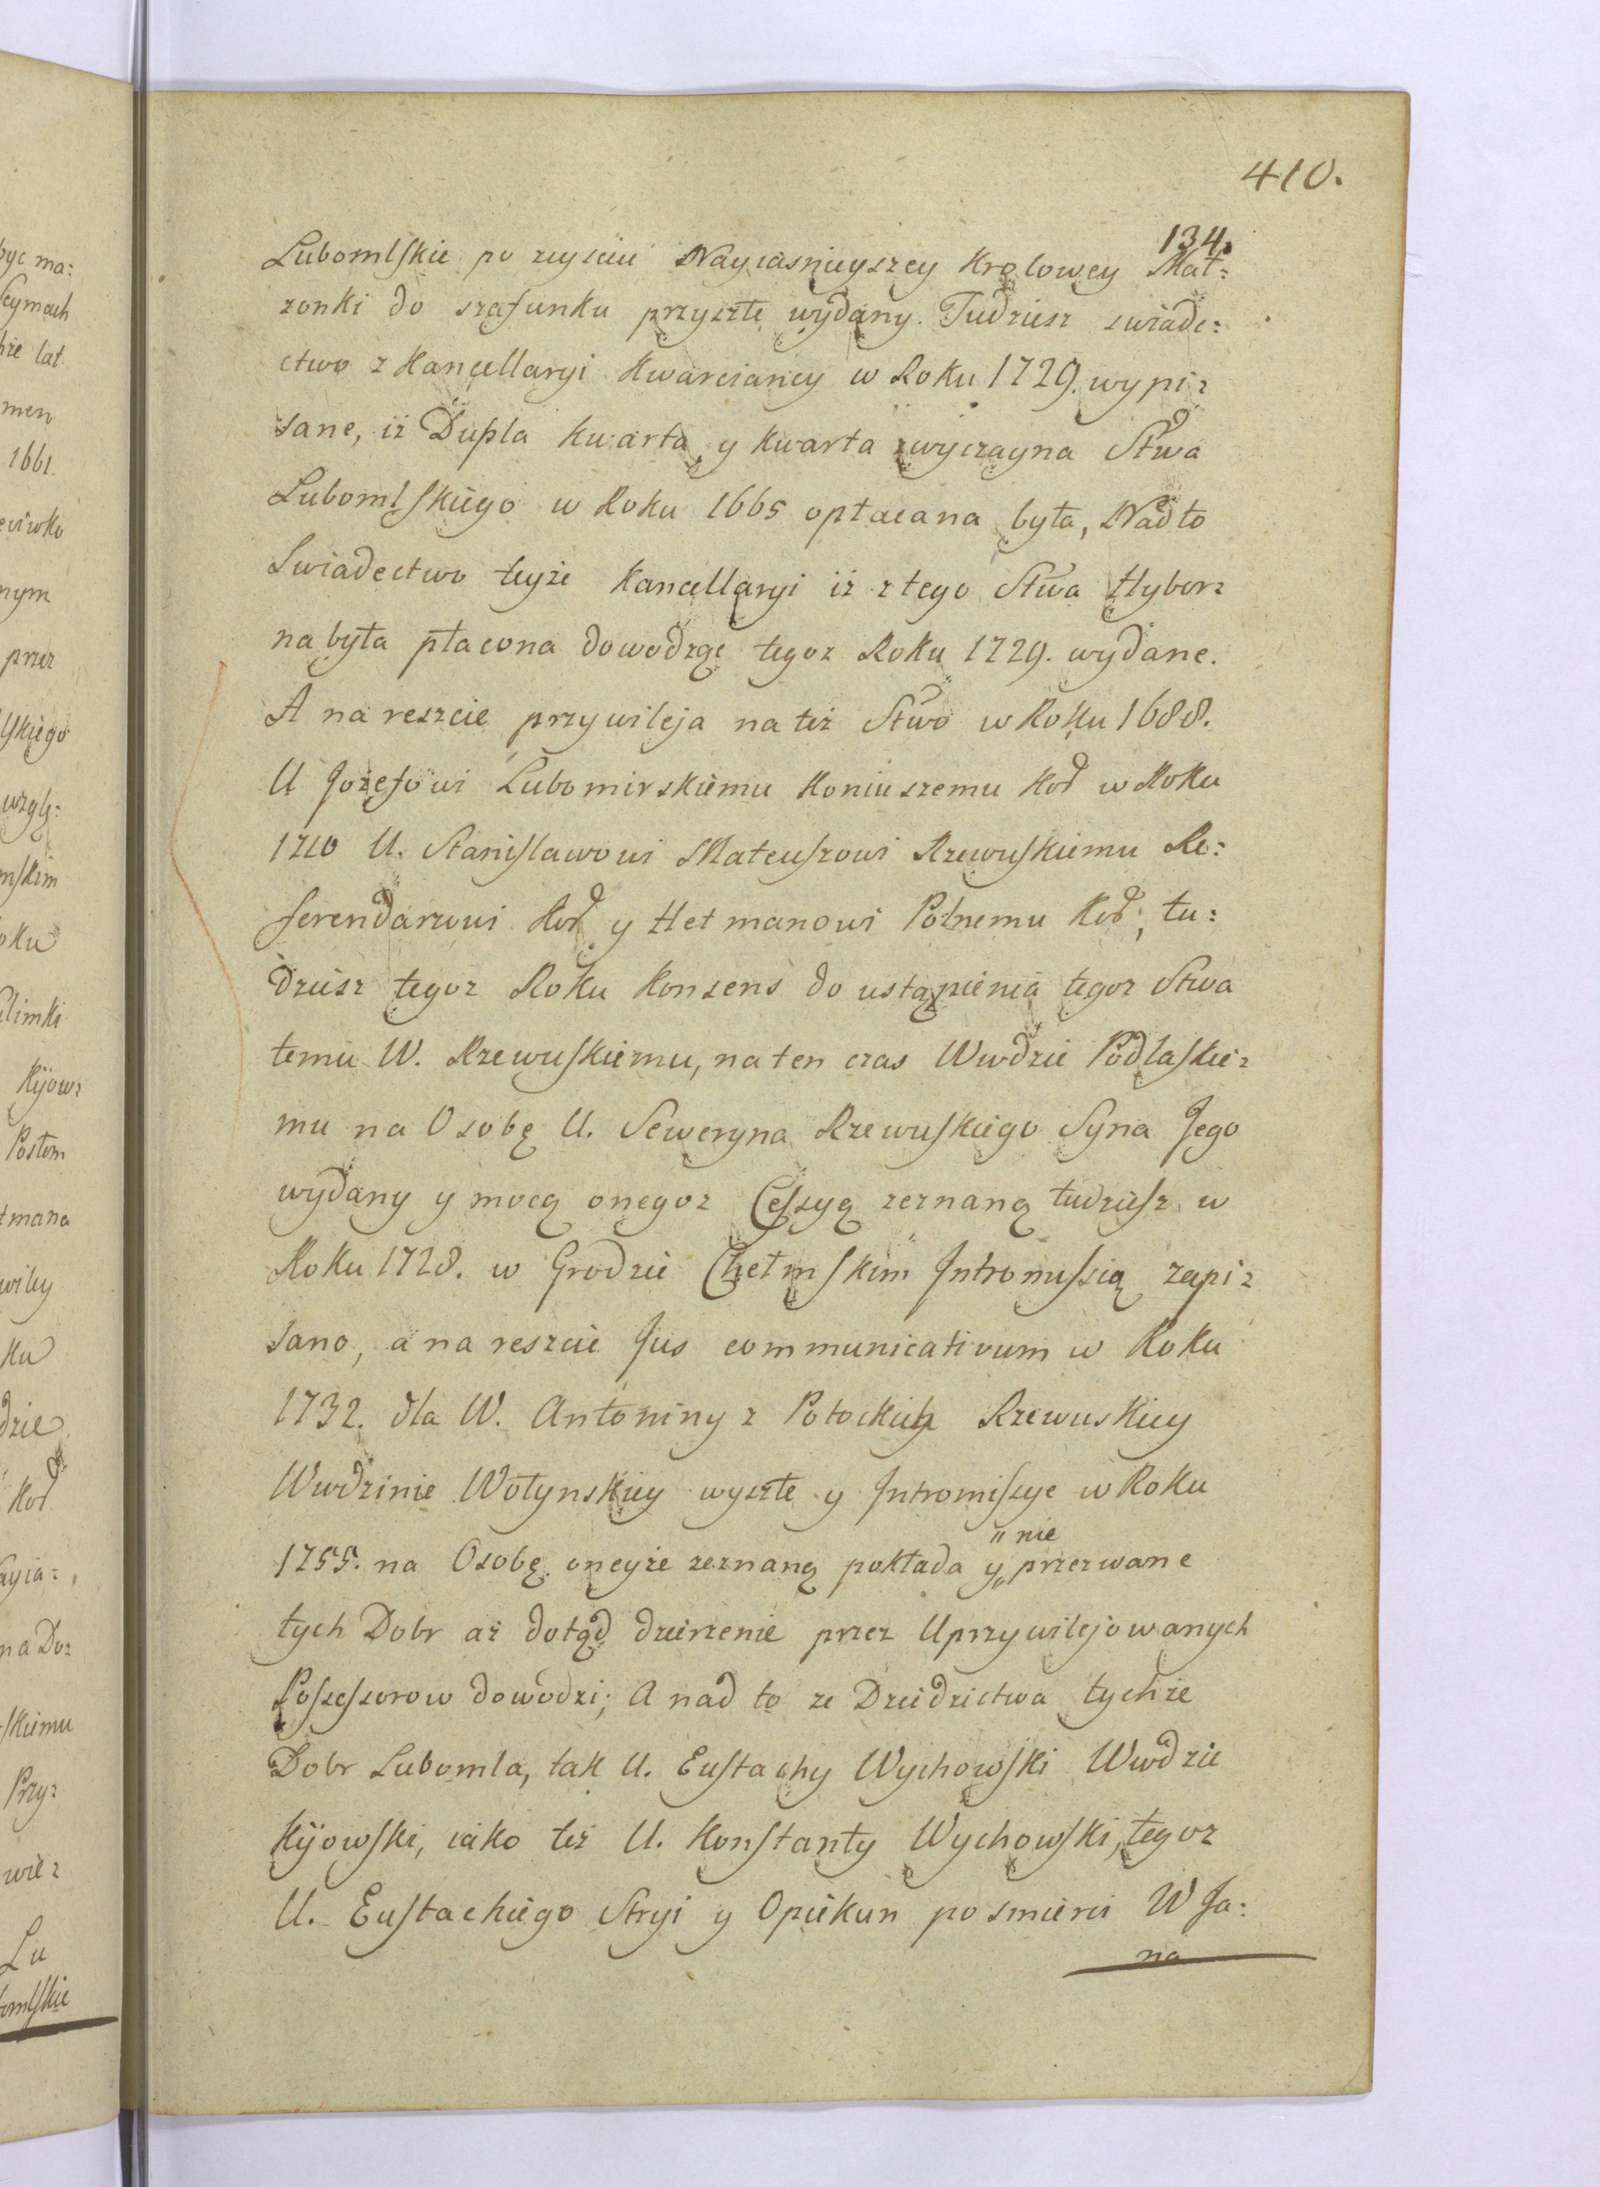 410.
134.
Lubomlskie po zeysciu Nayiasnieyszey Krolowey Mał:
zonki do szafunku przyszłe wydany. Tudziesz swiade:
ctwo z Kancellaryi Kwarcianey w Roku 1729. wypi:
sane, iż Dupla kwarta, y kwarta zwyczayna Stwa
Lubomlskiego w Roku 1665 opłacana była, Nadto
Swiadectwo teyże Kancellaryi iż z tego Stwa Hyber:
na była płacona dowodzące tegoz Roku 1729. wydane.
A na reszcie przywileja na też Stwo w Roku 1688.
U Jozefowi Lubomirskiemu Koniuszemu Kor w Roku
1710 U. Stanislawowi Mateuszowi Rzewuskiemu Re:
ferendarzowi Kor y Hetmanowi Polnemu Kor, tu:
dziesz tegoz Roku Konsens do ustąpienia tegoz Stwa
temu W. Rzewuskiemu, na ten czas Wwdzie Podlaskie:
mu na Osobę U. Seweryna Rzewuskiego Syna Jego
wydany y mocą onegoz Cessyą zeznaną tudziesz w
Roku 1728. w Grodzie Chełmskim Intromissią zapi:
sano, a na reszcie Jus communicativum w Roku
1732. dla W. Antoniny z Potockich Rzewuskiey
Wwdzinie Wołynskiey wyszłe y Intromissye w Roku
1755. na Osobę oneyże zeznaną pokłada y nie przerwane
tych Dobr aż dotąd dzierzenie przez Uprzywilejowanych
Possessorow dowodzi; A nad to ze Dziedzictwa tychże
Dobr Lubomla, tak U. Eustachy Wychowski Wwdzic
Kijowski, iako też U. Konstanty Wychowski, tegoz
U. Eustachiego Stryi y Opiekun po smierci W Ja:
na